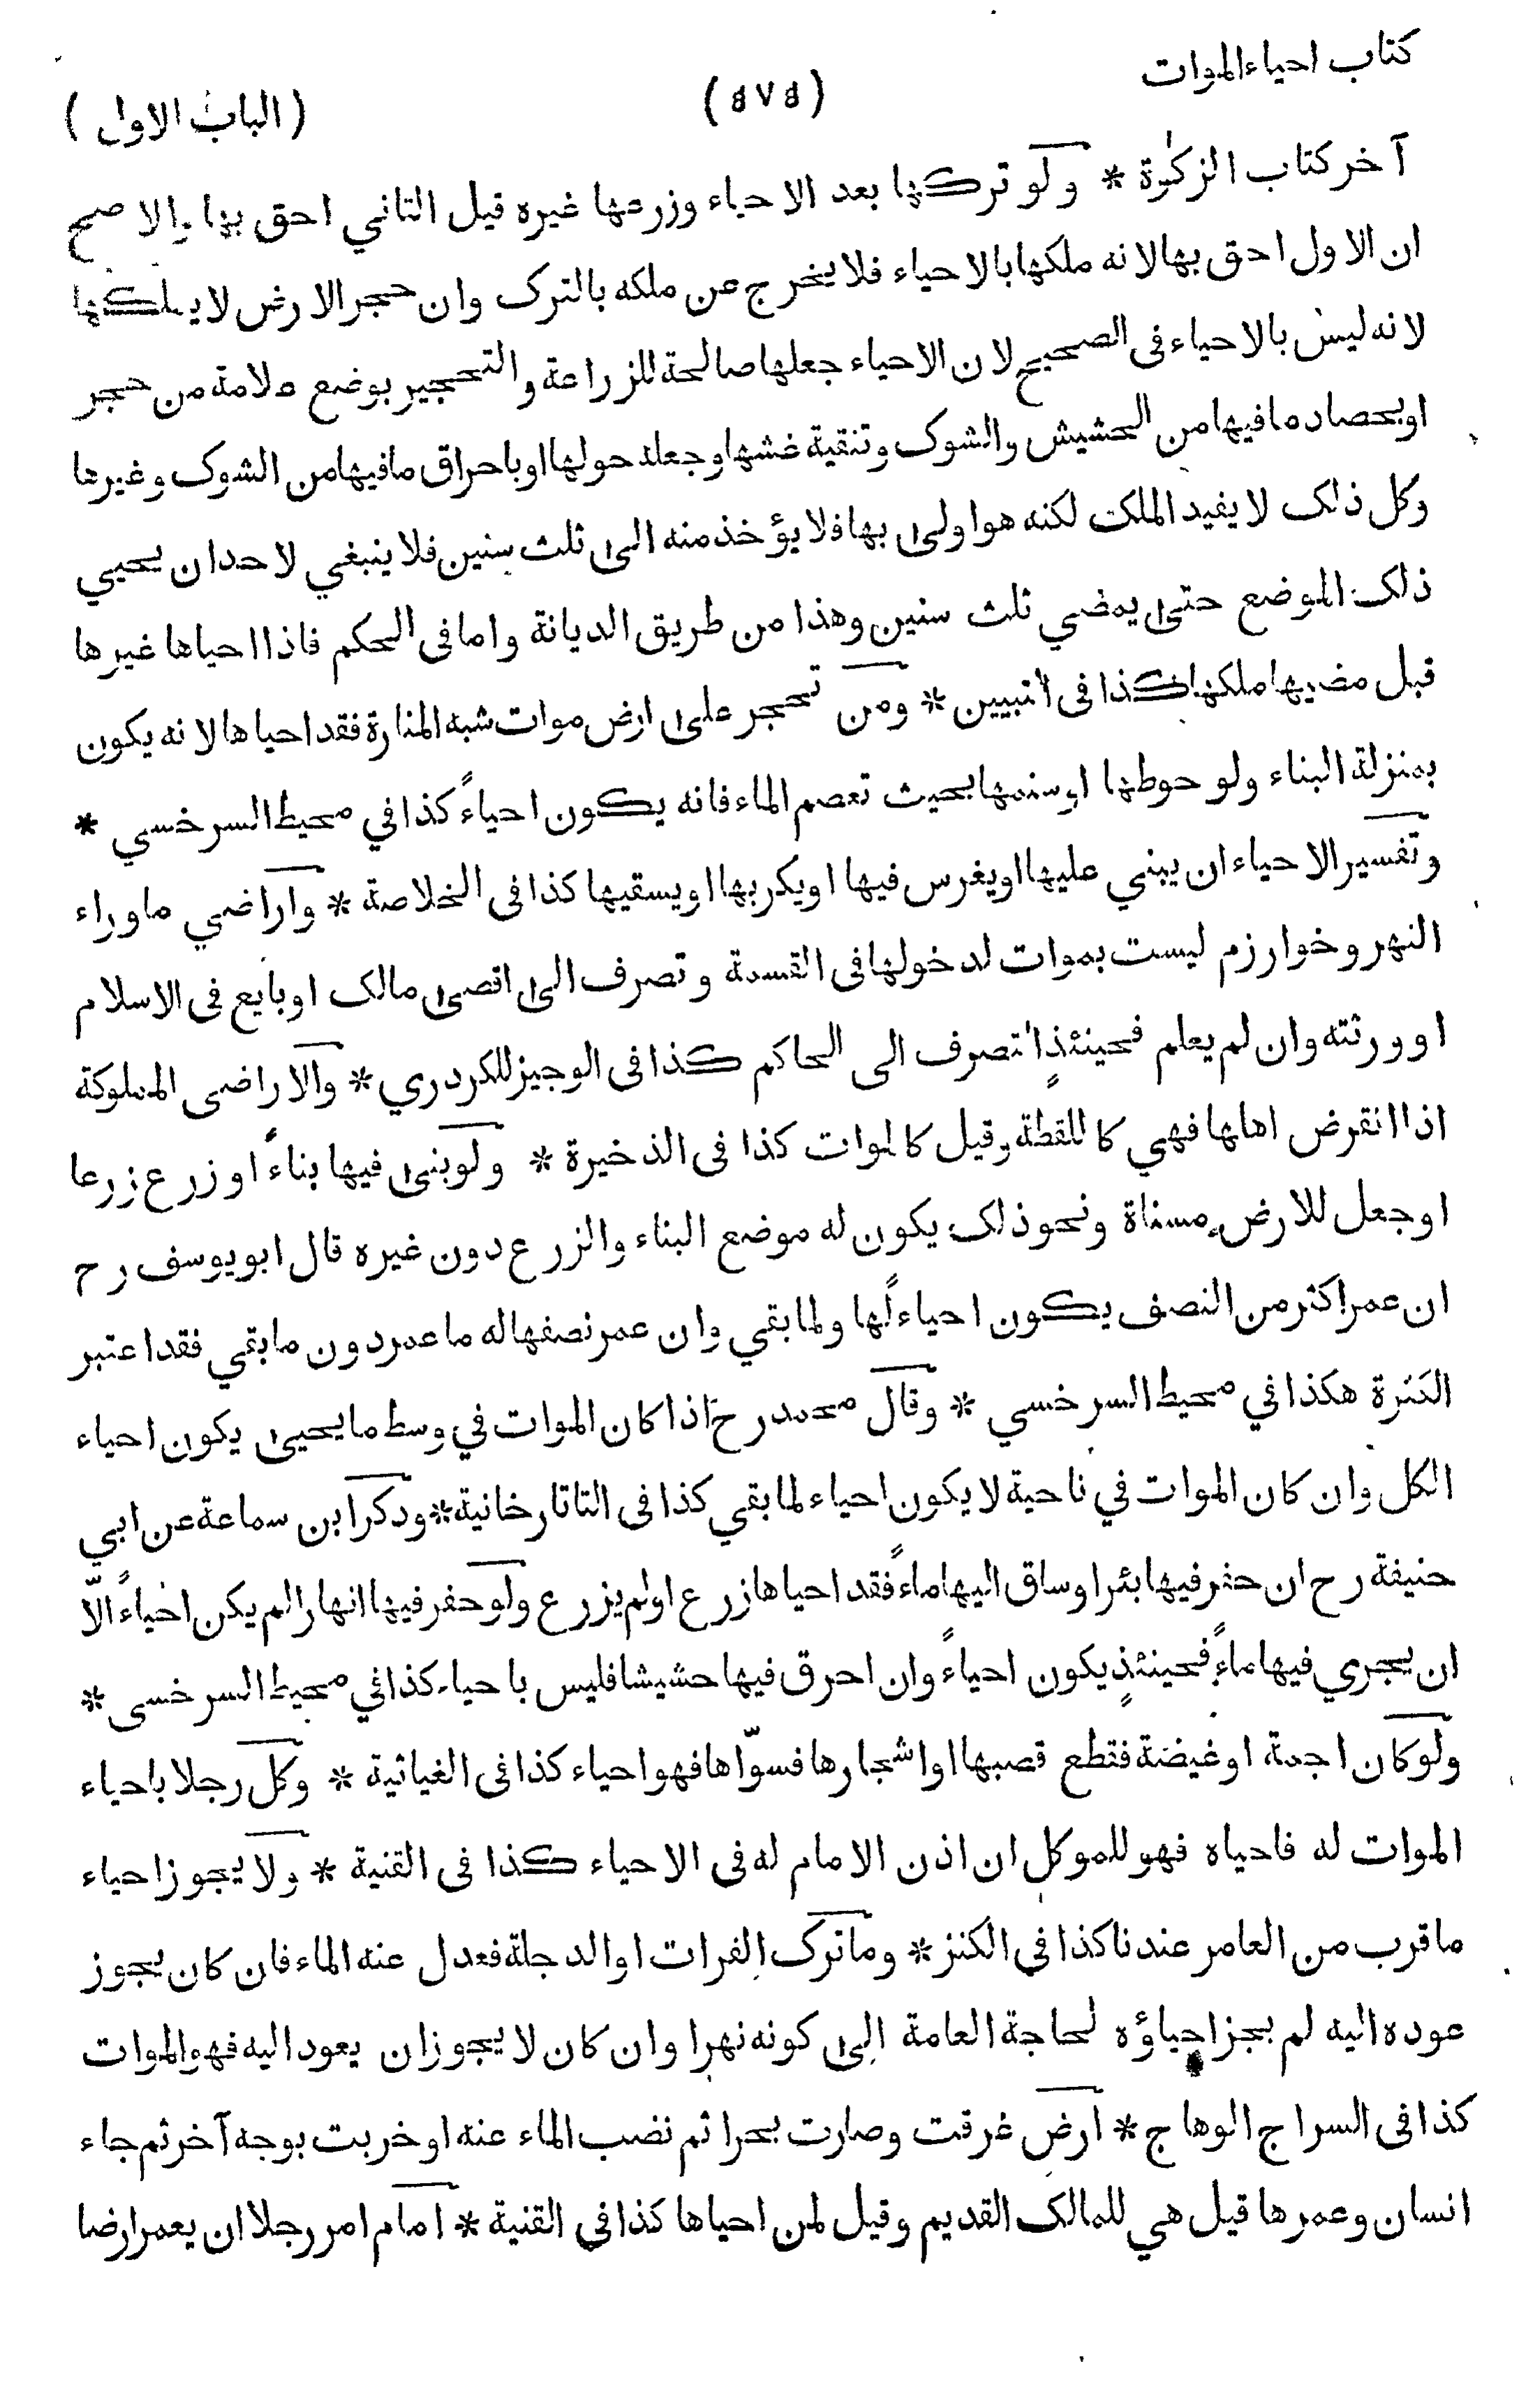 كتاب احياء الموات
(٥٧٥)
(الباب الاول)
آخر كتاب الزكوة * ولو تركها بعد الاحياء وزرعها غيره قيل الثاني احق بها والاصح
ان الاول احق بها لانه ملكها بالاحياء فلا يخرج عن ملكه بالترك وان حجر الارض لا يملكها
لانه ليس بالاحياء فى الصحيح لان الاحياء جعلها صالحة للزراعة والتحجير بوضع علامة من حجر
او بحصاد ما فيها من الحشيش والشوك وتنقية غشها وجعله حولها او باحراق ما فيها من الشوك وغيرها
وكل ذلك لا يفيد الملك لكنه هو اولى بها فلا يؤخذ منه الى ثلث سنين فلا ينبغي لاحد ان يحيي
ذلك الموضع حتى يمضي ثلث سنين وهذا من طريق الديانة واما فى الحكم فاذا احياها غيرها
قبل مضيها ملكها كذا فى التبيين * ومن تحجر على ارض موات شبه المنارة فقد احياها لانه يكون
بمنزلة البناء ولو حوطها او سنمها بحيث تعصم الماء فانه يكون احياءً كذا في محيط السرخسي *
وتفسير الاحياء ان يبني عليها او يغرس فيها او يكربها او يسقيها كذا فى الخلاصة * واراضي ما وراء
النهر وخوارزم ليست بموات لدخولها فى القسمة وتصرف الى اقصى مالك او بايع فى الاسلام
او ورثته وان لم يعلم فحينئذٍ تصرف الى الحاكم كذا فى الوجيز للكردري * والاراضى المملوكة
اذا انقرض اهلها فهي كاللقطة وقيل كالموات كذا فى الذخيرة * ولو بنى فيها بناءً او زرع زرعا
او جعل للارض مسناة ونحو ذلك يكون له موضع البناء والزرع دون غيره قال ابو يوسف رح
ان عمر اكثر من النصف يكون احياءً لها ولما بقي وان عمر نصفها له ما عمر دون ما بقي فقد اعتبر
الكثرة هكذا في محيط السرخسي * وقال محمد رح اذا كان الموات في وسط ما يحيى يكون احياء
الكل وان كان الموات في ناحية لا يكون احياء لما بقي كذا فى التاتارخانية * وذكر ابن سماعة عن ابي
حنيفة رح ان حفر فيها بئرا وساق اليها ماءً فقد احياها زرع او لم يزرع ولو حفر فيها انهارا لم يكن احياءً الّا
ان يجري فيها ماءً فحينئذٍ يكون احياءً وان احرق فيها حشيشا فليس باحياء كذا في محيط السرخسى *
ولو كان اجمة او غيضة فقطع قصبها او اشجارها فسوّاها فهو احياء كذا فى الغياثية * وكل رجلا باحياء
الموات له فاحياه فهو للموكل ان اذن الامام له فى الاحياء كذا فى القنية * ولا يجوز احياء
ما قرب من العامر عندنا كذا في الكنز * وما ترك الفرات او الدجلة فعدل عنه الماء فان كان يجوز
عوده اليه لم يجز احياؤه لحاجة العامة الى كونه نهرا وان كان لا يجوز ان يعود اليه فهو الموات
كذا فى السراج الوهاج * ارض غرقت وصارت بحرا ثم نضب الماء عنه او خربت بوجه آخر ثم جاء
انسان وعمرها قيل هي للمالك القديم وقيل لمن احياها كذا في القنية * امام امر رجلا ان يعمر ارضا